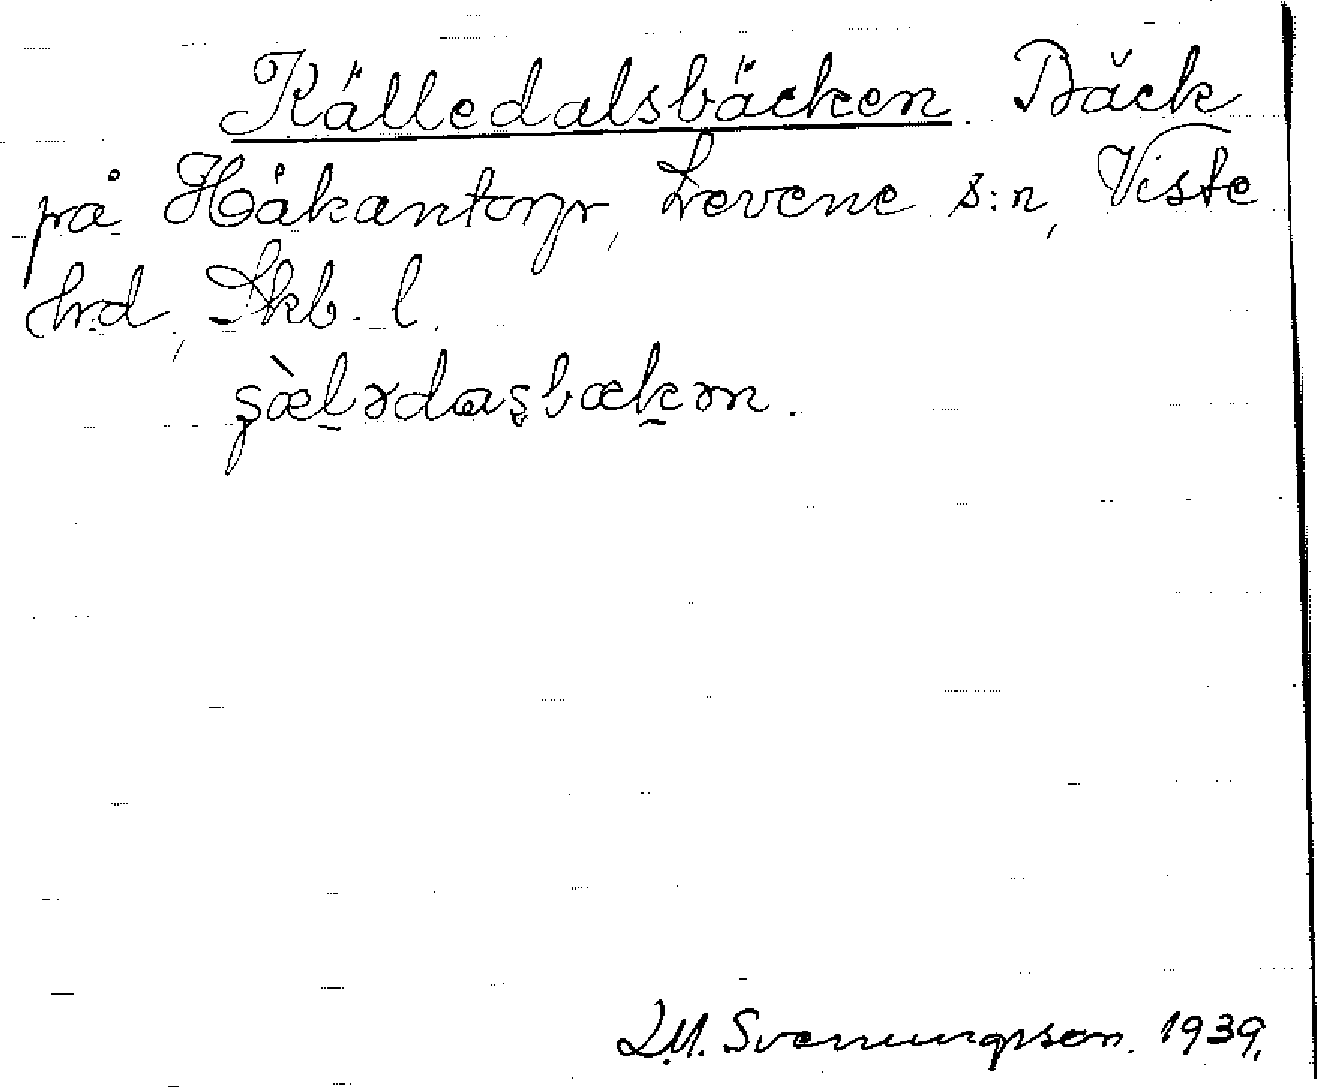 Källedalsbäcken. Bäck
på Håkantorp, Levene s:n, Viste
hrd, Skb. l.
şæ̀l̠ədaşbæk̠ən.
L.M. Svenungsson. 1939.